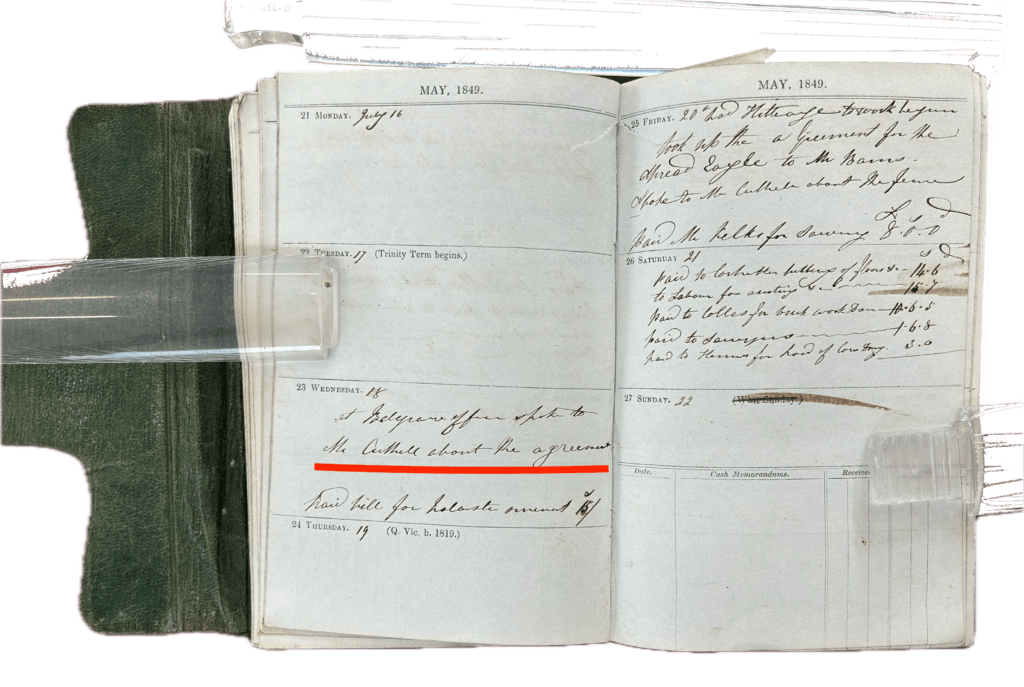 MAY, 1849.
21 MONDAY. July 16
22 TUESDAY. 17 (Trinity Term begins.)
23 WEDNESDAY. 18
at Belgrave office spoke to
Mr Cuthell about the agreement
Paid bill for ornament 15/
24 THURSDAY. 19 (Q. Vic. b. 1819.)
MAY, 1849.
25 FRIDAY. 20th had to work began
took up the a Greement for the
Spread Eagle to Mr
Spoke to Mr Cuthell about the fence
£ s d
Paid Mr Kelks for Sawing 8.0.0
26 SATURDAY 21 s d
Paid to of floors 14.6
to Labour for 15.7
Paid to Colles for brick work Done 6.5
Paid to Sawyers 1.6.8
paid to for load of 3.0
27 SUNDAY. 22 (Whit Sunday.)
Date. Cash Memorandums. Received